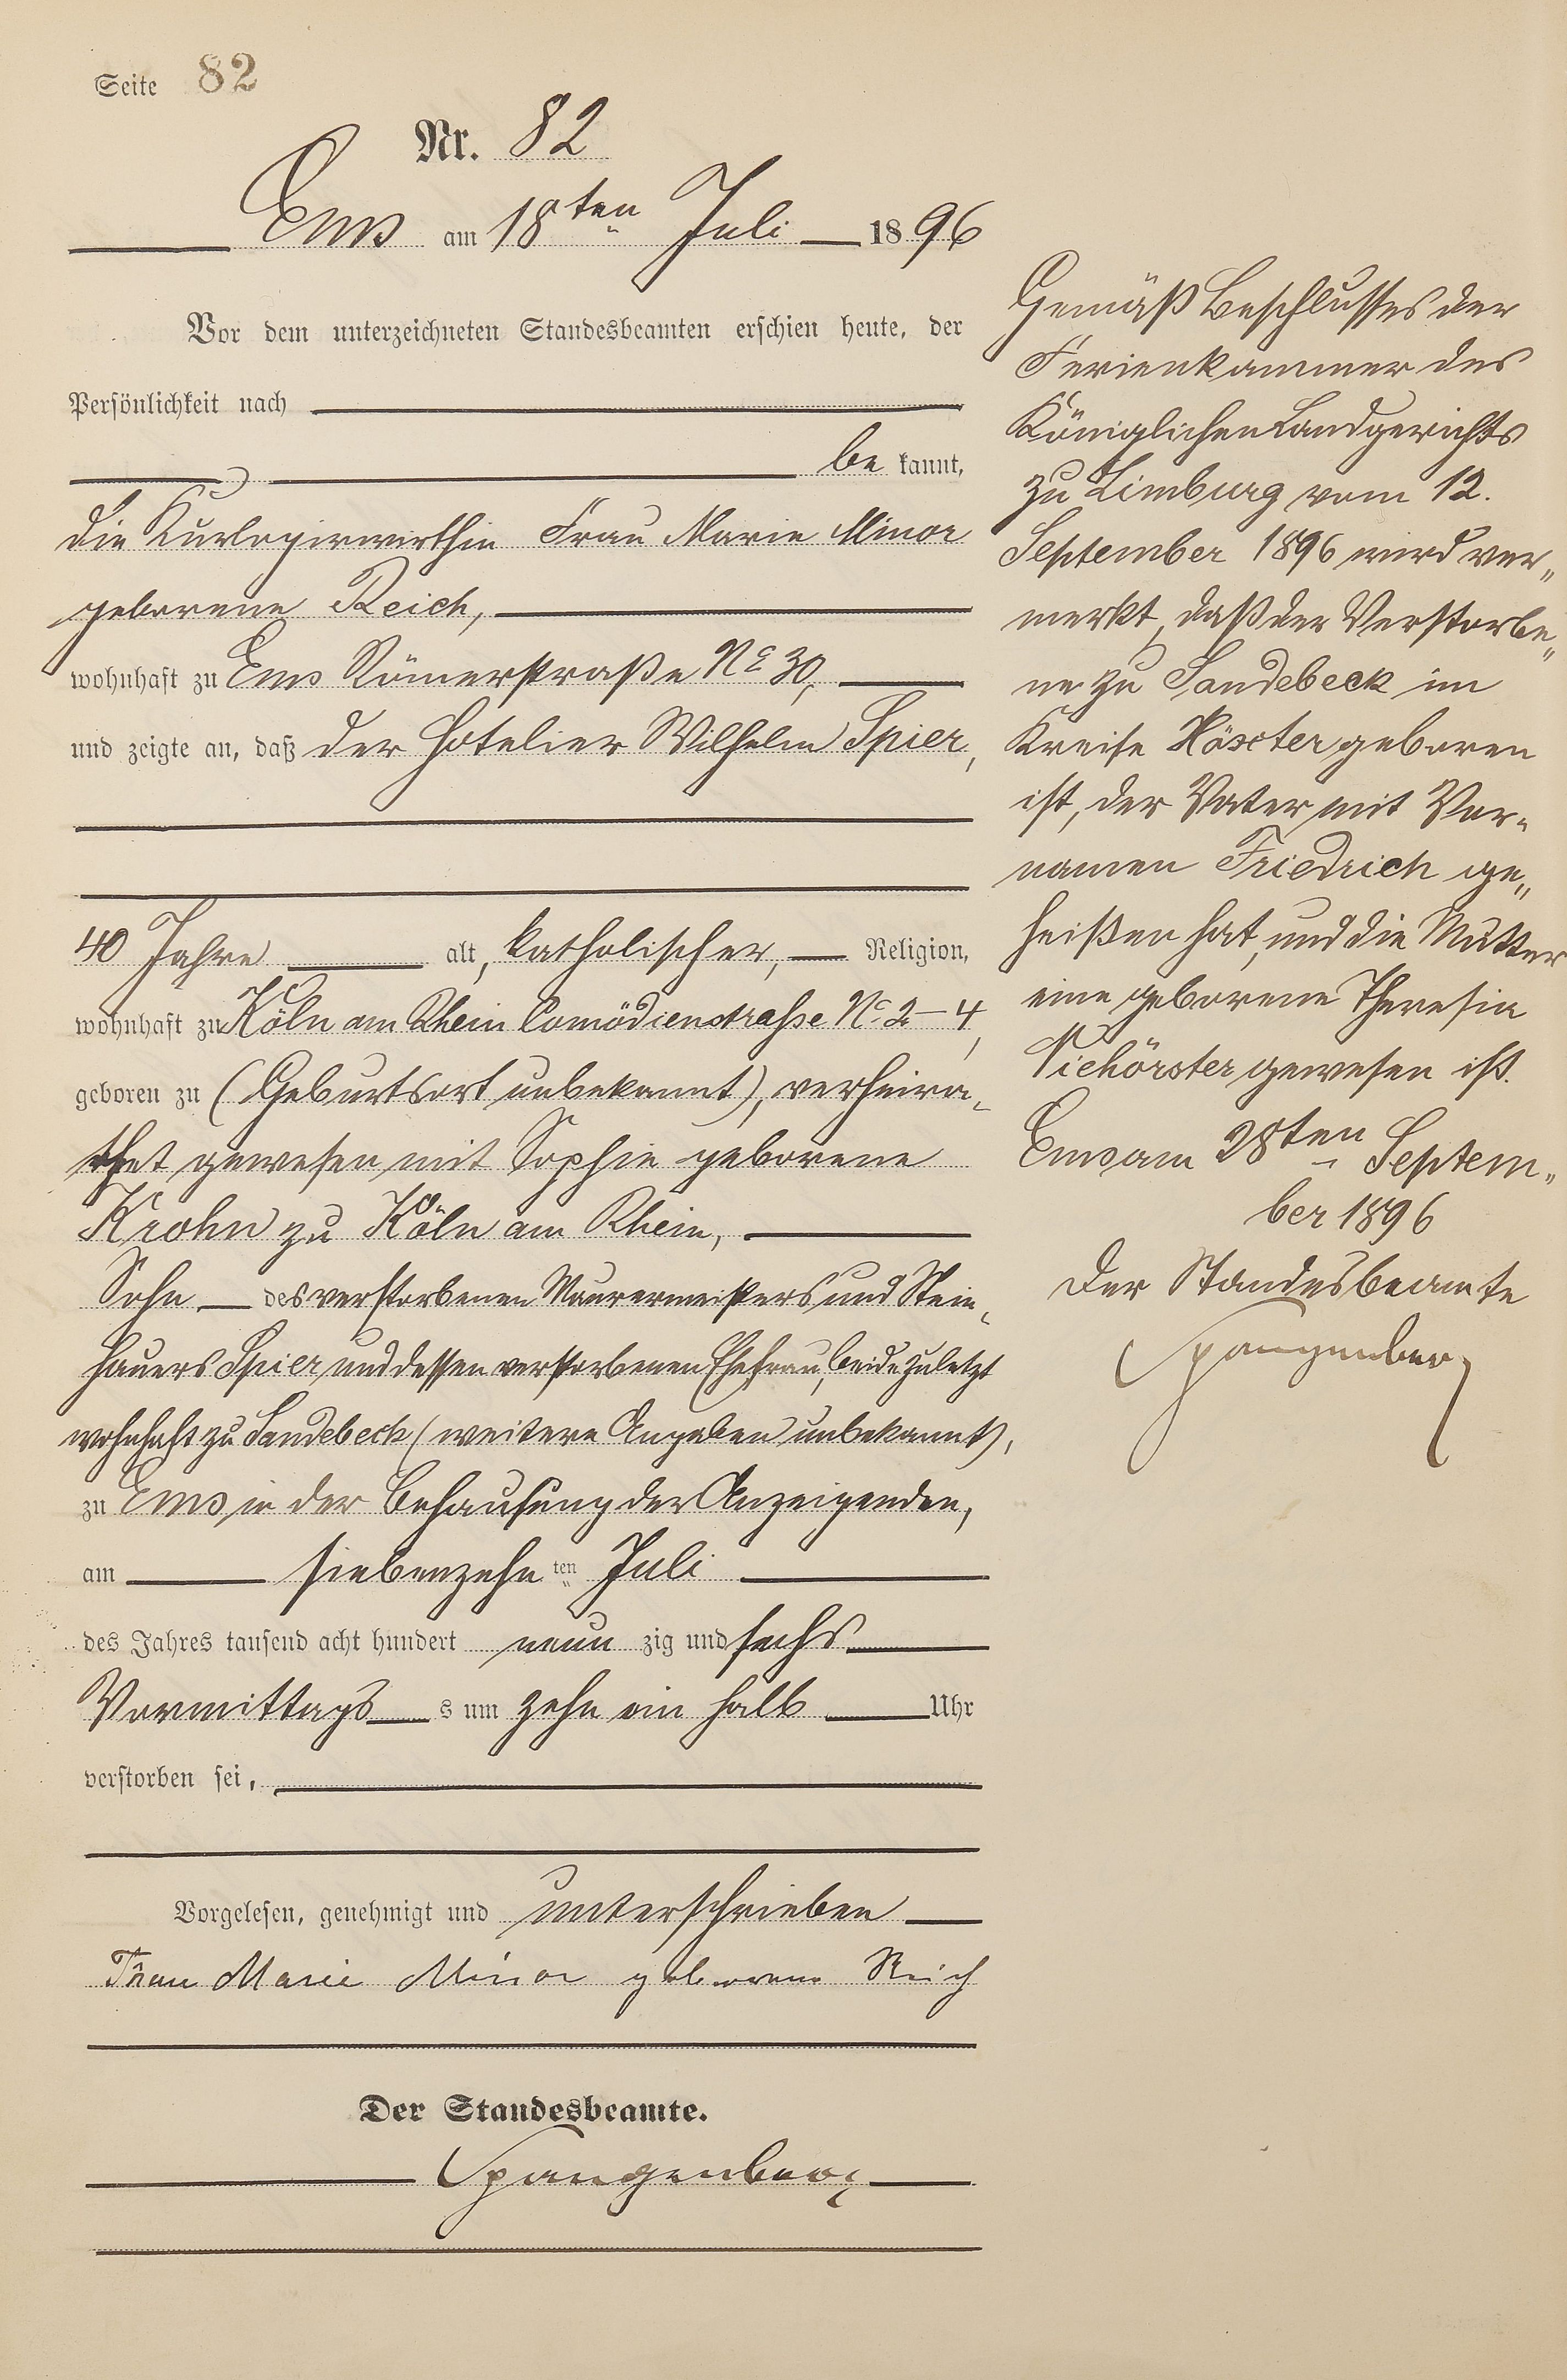 Seite 82
Nr. 82
Ems am 18ten Juli 1896
Vor dem unterzeichneten Standesbeamten erschien heute, der
Persönlichkeit nach
be kannt,
die Kurlogirwirthin Frau Marie Minor
geborene Reich,
wohnhaft zu Ems Römerstraße No 30,
und zeigte an, daß der Hotelier Wilhelm Spier,
40 Jahre alt, katholischer, Religion,
wohnhaft zu Köln am Rhein Comödienstraße No 2-4,
geboren zu (Geburtsort unbekannt), verheira-
thet gewesen mit Sophie geborene
Krohn zu Köln am Rhein,
Sohn des verstorbenen Maurermeisters und Stein-
hauers Spier und dessen verstorbenen Ehefrau, beide zuletzt
wohnhaft zu Sandebeck (weitere Angaben unbekannt),
zu Ems in der Behausung der Anzeigenden,
am siebenzehn ten Juli
des Jahres tausend acht hundert neun zig und sechs
Vormittags s um zehn ein halb Uhr
verstorben sei,
Vorgelesen, genehmigt und unterschrieben
Frau Marie Minor geborene Reich
Der Standesbeamte.
Spangenberg
Gemäß Beschlusses der
Ferienkammer des
Königlichen Landgerichts
zu Limburg vom 12.
September 1896 wird ver„
merkt, daß der Verstorbe„
ne zu Sandebeck im
Kreise Höxter geboren
ist, der Vater mit Vor-
namen Friedrich ge„
heißen hat, und die Mutter
eine geborene Theresia
Niehörster gewesen ist.
Ems am 28ten Septem„
ber 1896
Der Standesbeamte
Spangenberg